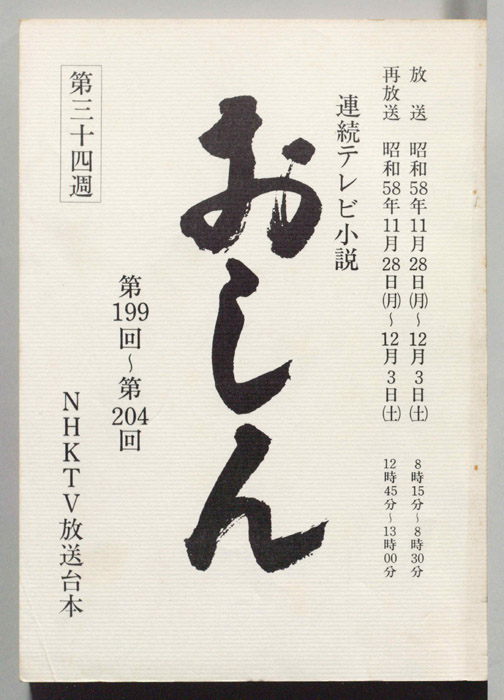 放送 昭和58年11月28日(月)～12月3日(土) 8時15分～8時30分
再放送 昭和58年11月28日(月)～12月3日(土) 12時45分～13時00分
連続テレビ小説
おしん
第199回～第204回
第三十四週
NHKTV放送台本